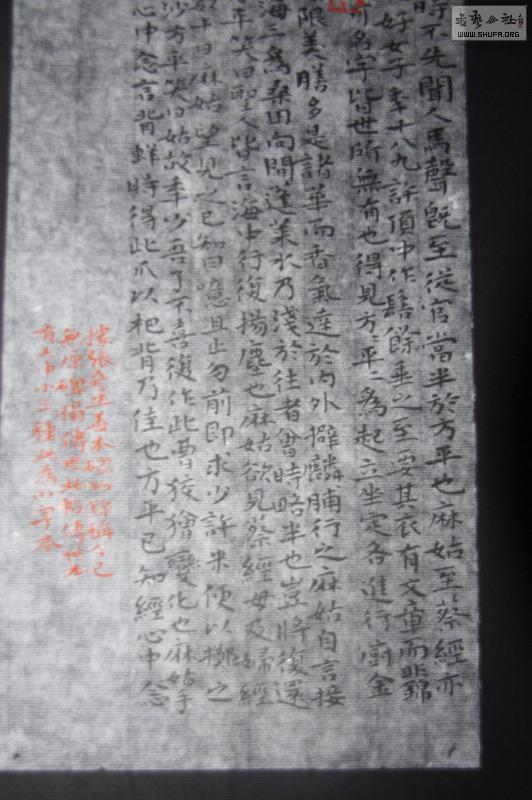 時不先聞人馬聲既至從官當半於方平也麻姑至蔡經亦
好女子年十八九許頂中作髻餘垂之至要其衣有文章而非錦
名字皆世所無有也得見方平〻為起立坐定各進行廚金
限美膳多是諸華而香氣達於內外擗麟脯行之麻姑自言接
海三為桑田向間蓬萊水乃淺於往者會時略半也豈將復還
平笑曰聖人皆言海中行復揚塵也麻姑欲見蔡經母及婦經
數日麻姑望見之已知曰噫且止勿前即求少許米便以擲之
沙方平笑曰姑故年少吾了不喜復作此曹狡獪變化也麻姑手
心中念言背蛘時得此爪以杷背乃佳也方平已知經心中念
據張彥生善本碑帖錄稱今已
無原碑搨傳世此帖傳世
有大中小三種此為小字本
書藝公社
WWW.SHUFA.ORG